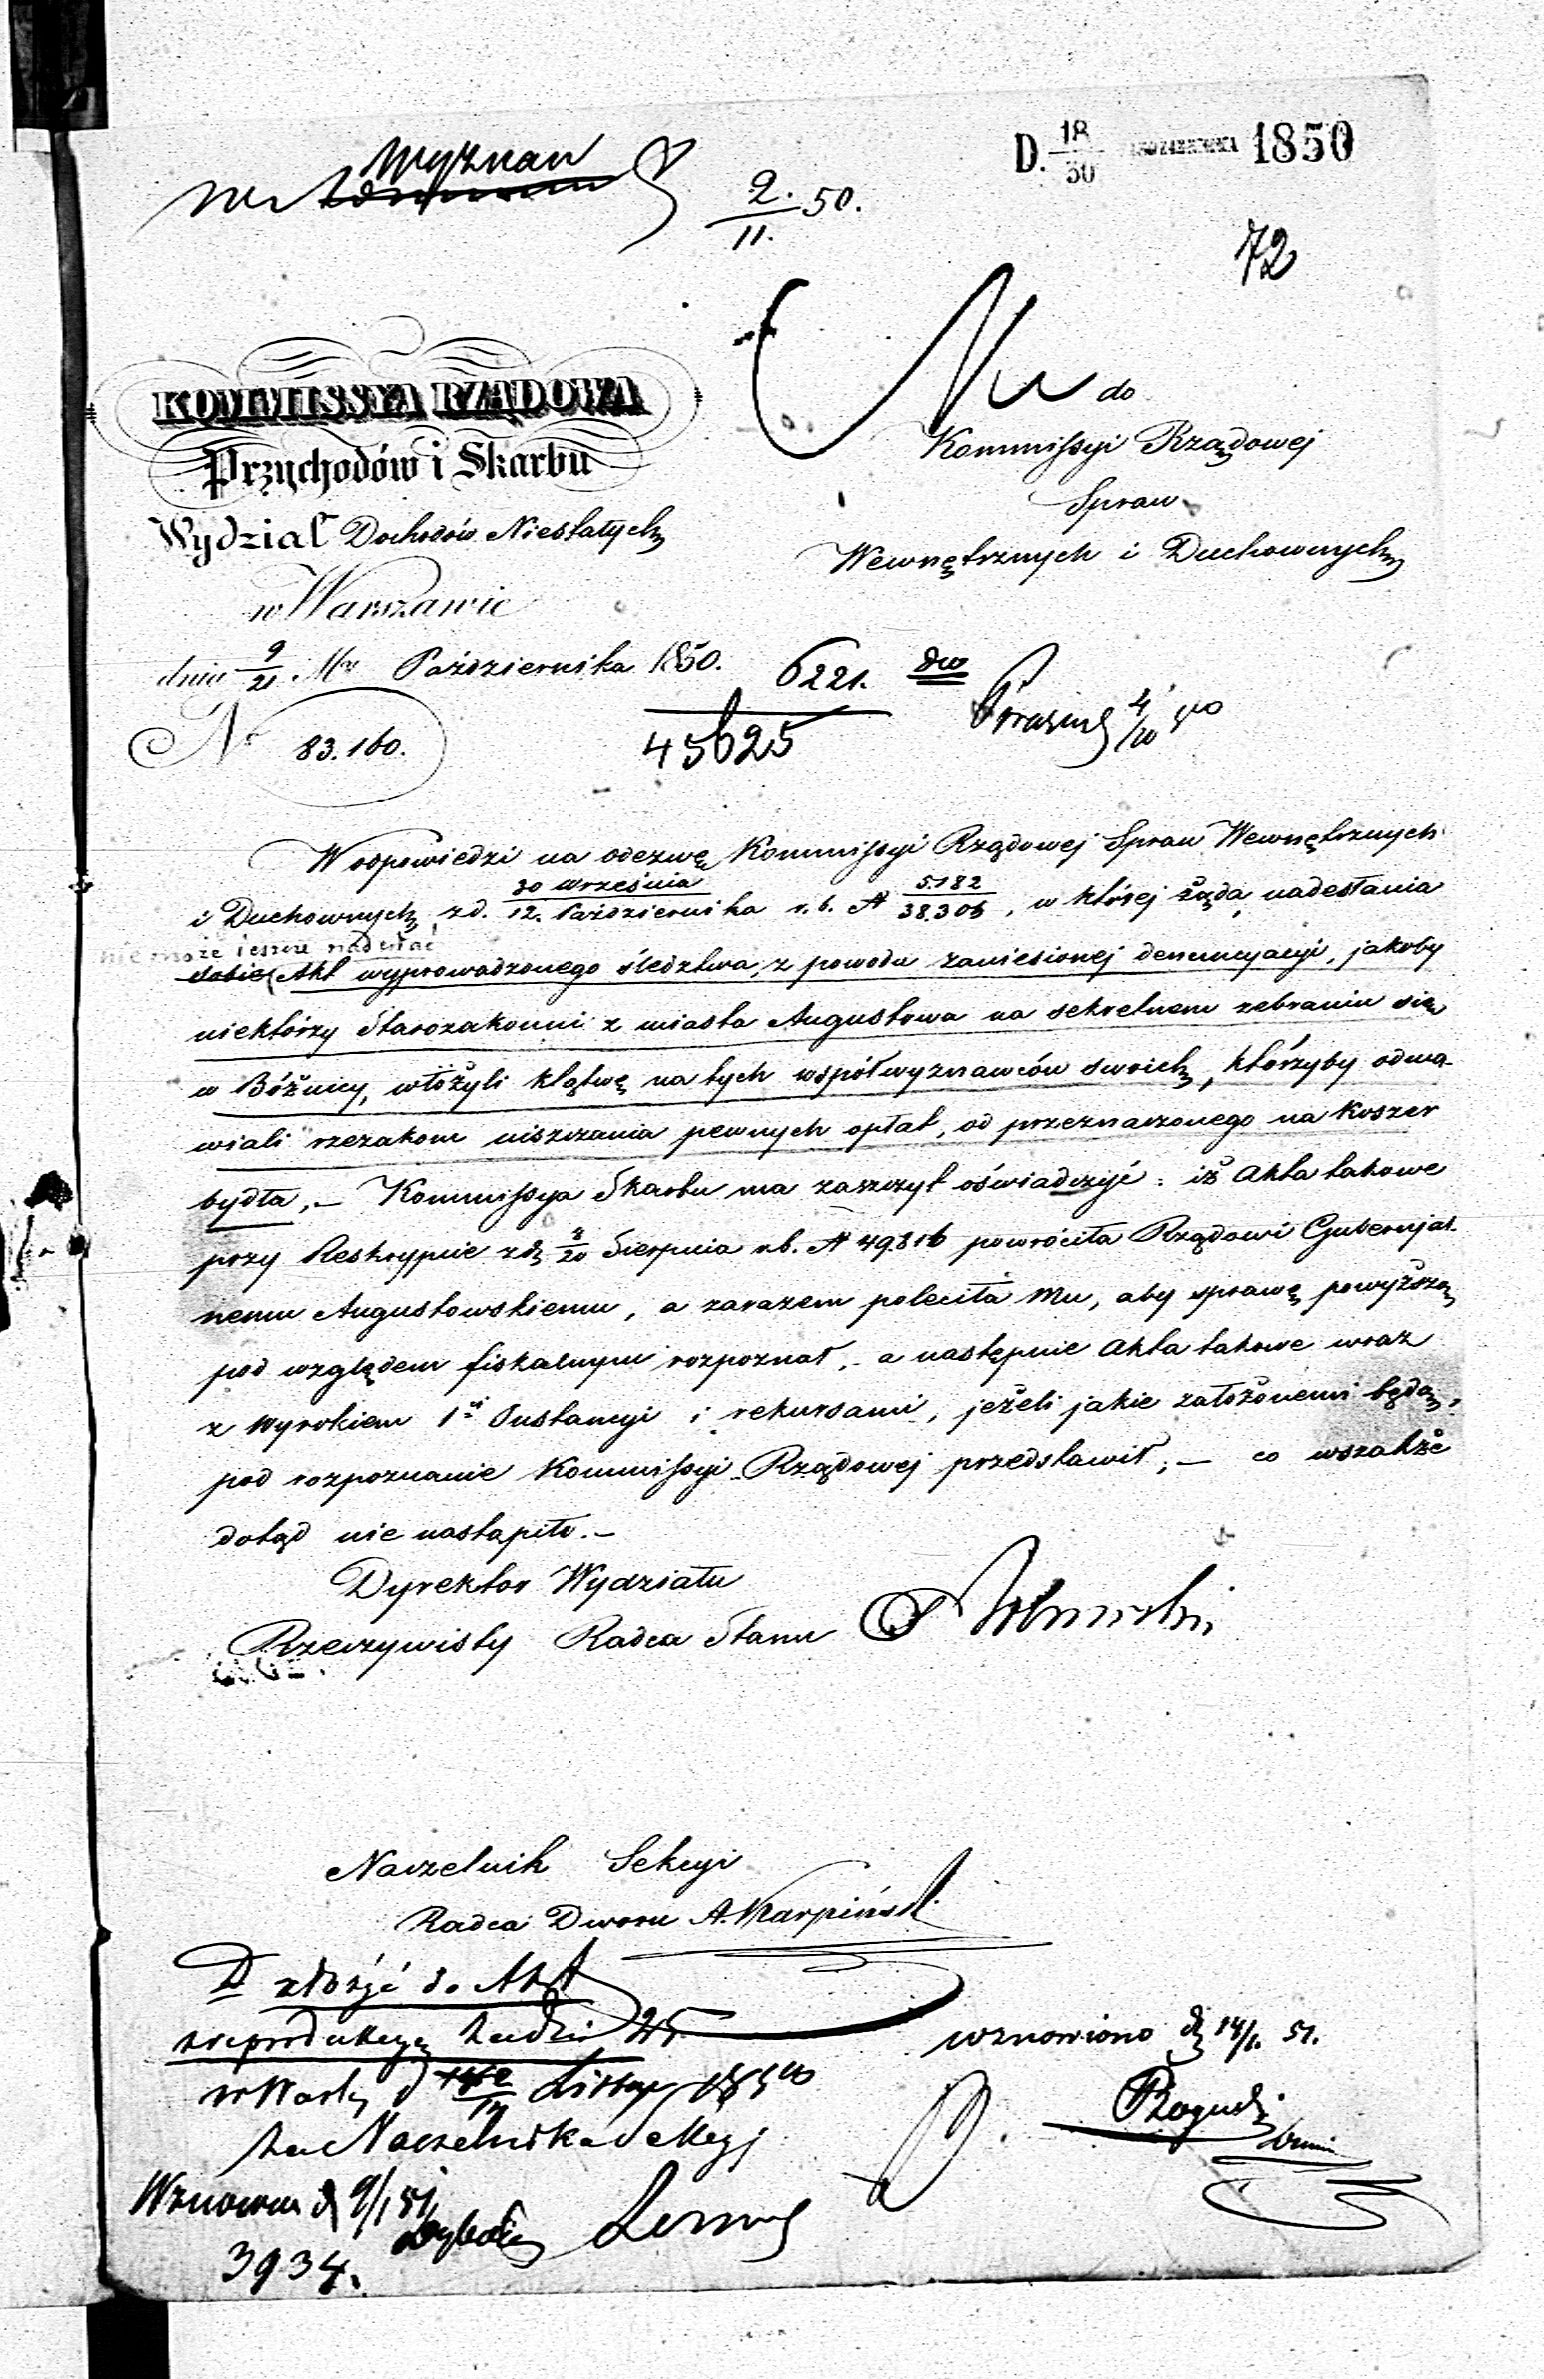 Wyznań
D. 18/30 PAZDZIERNIKA 1850
2./11. 50.
72
KOMMISSYA RZĄDOWA
Przychodów i Skarbu
Wydział Dochodów Niestałych
w Warszawie
dnia 9/21 Mca Października 1850.
No 83.160.
do
Kommissyi Rządowej
Spraw
Wewnętrznych i Duchownych
6221.
45625
W odpowiedzi na odezwę Kommissyi Rządowej Spraw Wewnętrznych
i Duchownych z d. 30 Września/12. Października r. b. N 5.182/38.306, w której żąda nadesłania
nie może jeszcze nadesłać
sobie Akt wyprowadzonego śledztwa, z powodu zaniesionej denuncyacyi, jakoby
niektórzy Starozakonni z miasta Augustowa na sekretnem zebraniu się
w Bóżnicy, włożyli klątwę na tych współwyznawców swoich, którzyby odma-
wiali rzezakom uiszczania pewnych opłat, od przeznaczonego na Koszer
bydła, – Kommissya Skarbu ma zaszczyt oświadczyć: iż Akta takowe
przy Reskrypcie z d. 8/20 Sierpnia r. b. N 49.816 powróciła Rządowi Gubernjal-
nemu Augustowskiemu, a zarazem poleciła Mu, aby sprawę powyższą
pod względem fiskalnym rozpoznał, – a następnie Akta takowe wraz
z wyrokiem 1éj Instancyi i rekursami, jeżeli jakie założonemi będą,
pod rozpoznanie Kommissyi Rządowej przedstawił; – co wszakże
dotąd nie nastąpiło. –
Dyrektor Wydziału
Rzeczywisty Radca Stanu
Naczelnik Sekcyi
Radca Dworu A. Karpiński
D złożyć do Akt
z reprodukcyą
wznowiono d 14/1. 51.
Za Naczelnika Sekcyj
3934.